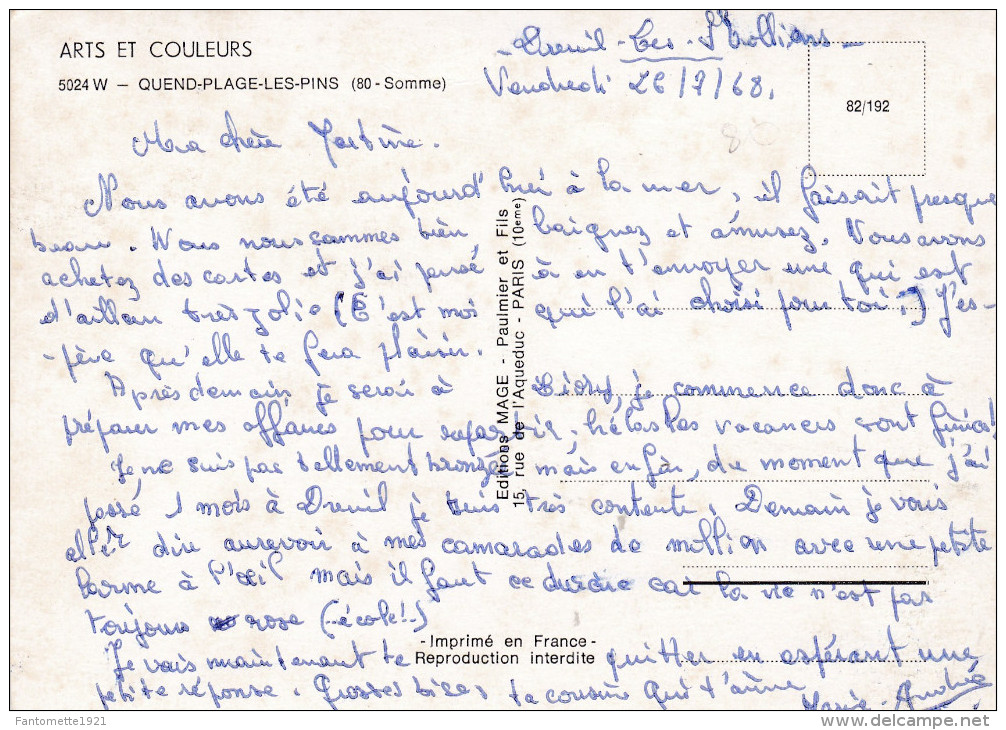 ARTS ET COULEURS
5024 W – QUEND-PLAGE-LES-PINS (80 - Somme)
82/192
- Dreuil - Les - Molliens -
Vendredi 26/7/68.
Ma chère Martine.
Nous avons été aujourd'hui à la mer, il faisait presque
beau. Nous nous sommes bien baignez et amusez. Nous avons
achetez des cartes et j'ai pensé à en t'envoyer une qui est
d'ailleur très jolie (C'est moi qui l'ai choisi pour toi.) J'es-
-père qu'elle te fera plaisir.
Après demain je serai à Licry, je commence donc à
préparer mes affaires pour repartir, hélas les vacances sont finies!
Je ne suis pas tellement bronzée mais enfin, du moment que j'ai
passé 1 mois à Dreuil je suis très contente. Demain je vais
aller dire aurevoir à mes camarades de million avec une petite
larme à l'œil mais il faut ce dire car la vie n'est pas
toujours rose (..école!..)
Je vais maintenant te quitter en espérant une
petite réponse. Grosses bises ta cousine qui t'aime
Marie-Andrée
Editions MAGE - Paulmier et Fils
15, rue de l'Aqueduc - PARIS (10eme)
- Imprimé en France -
Reproduction interdite
Fantomette1921
delcampe.net